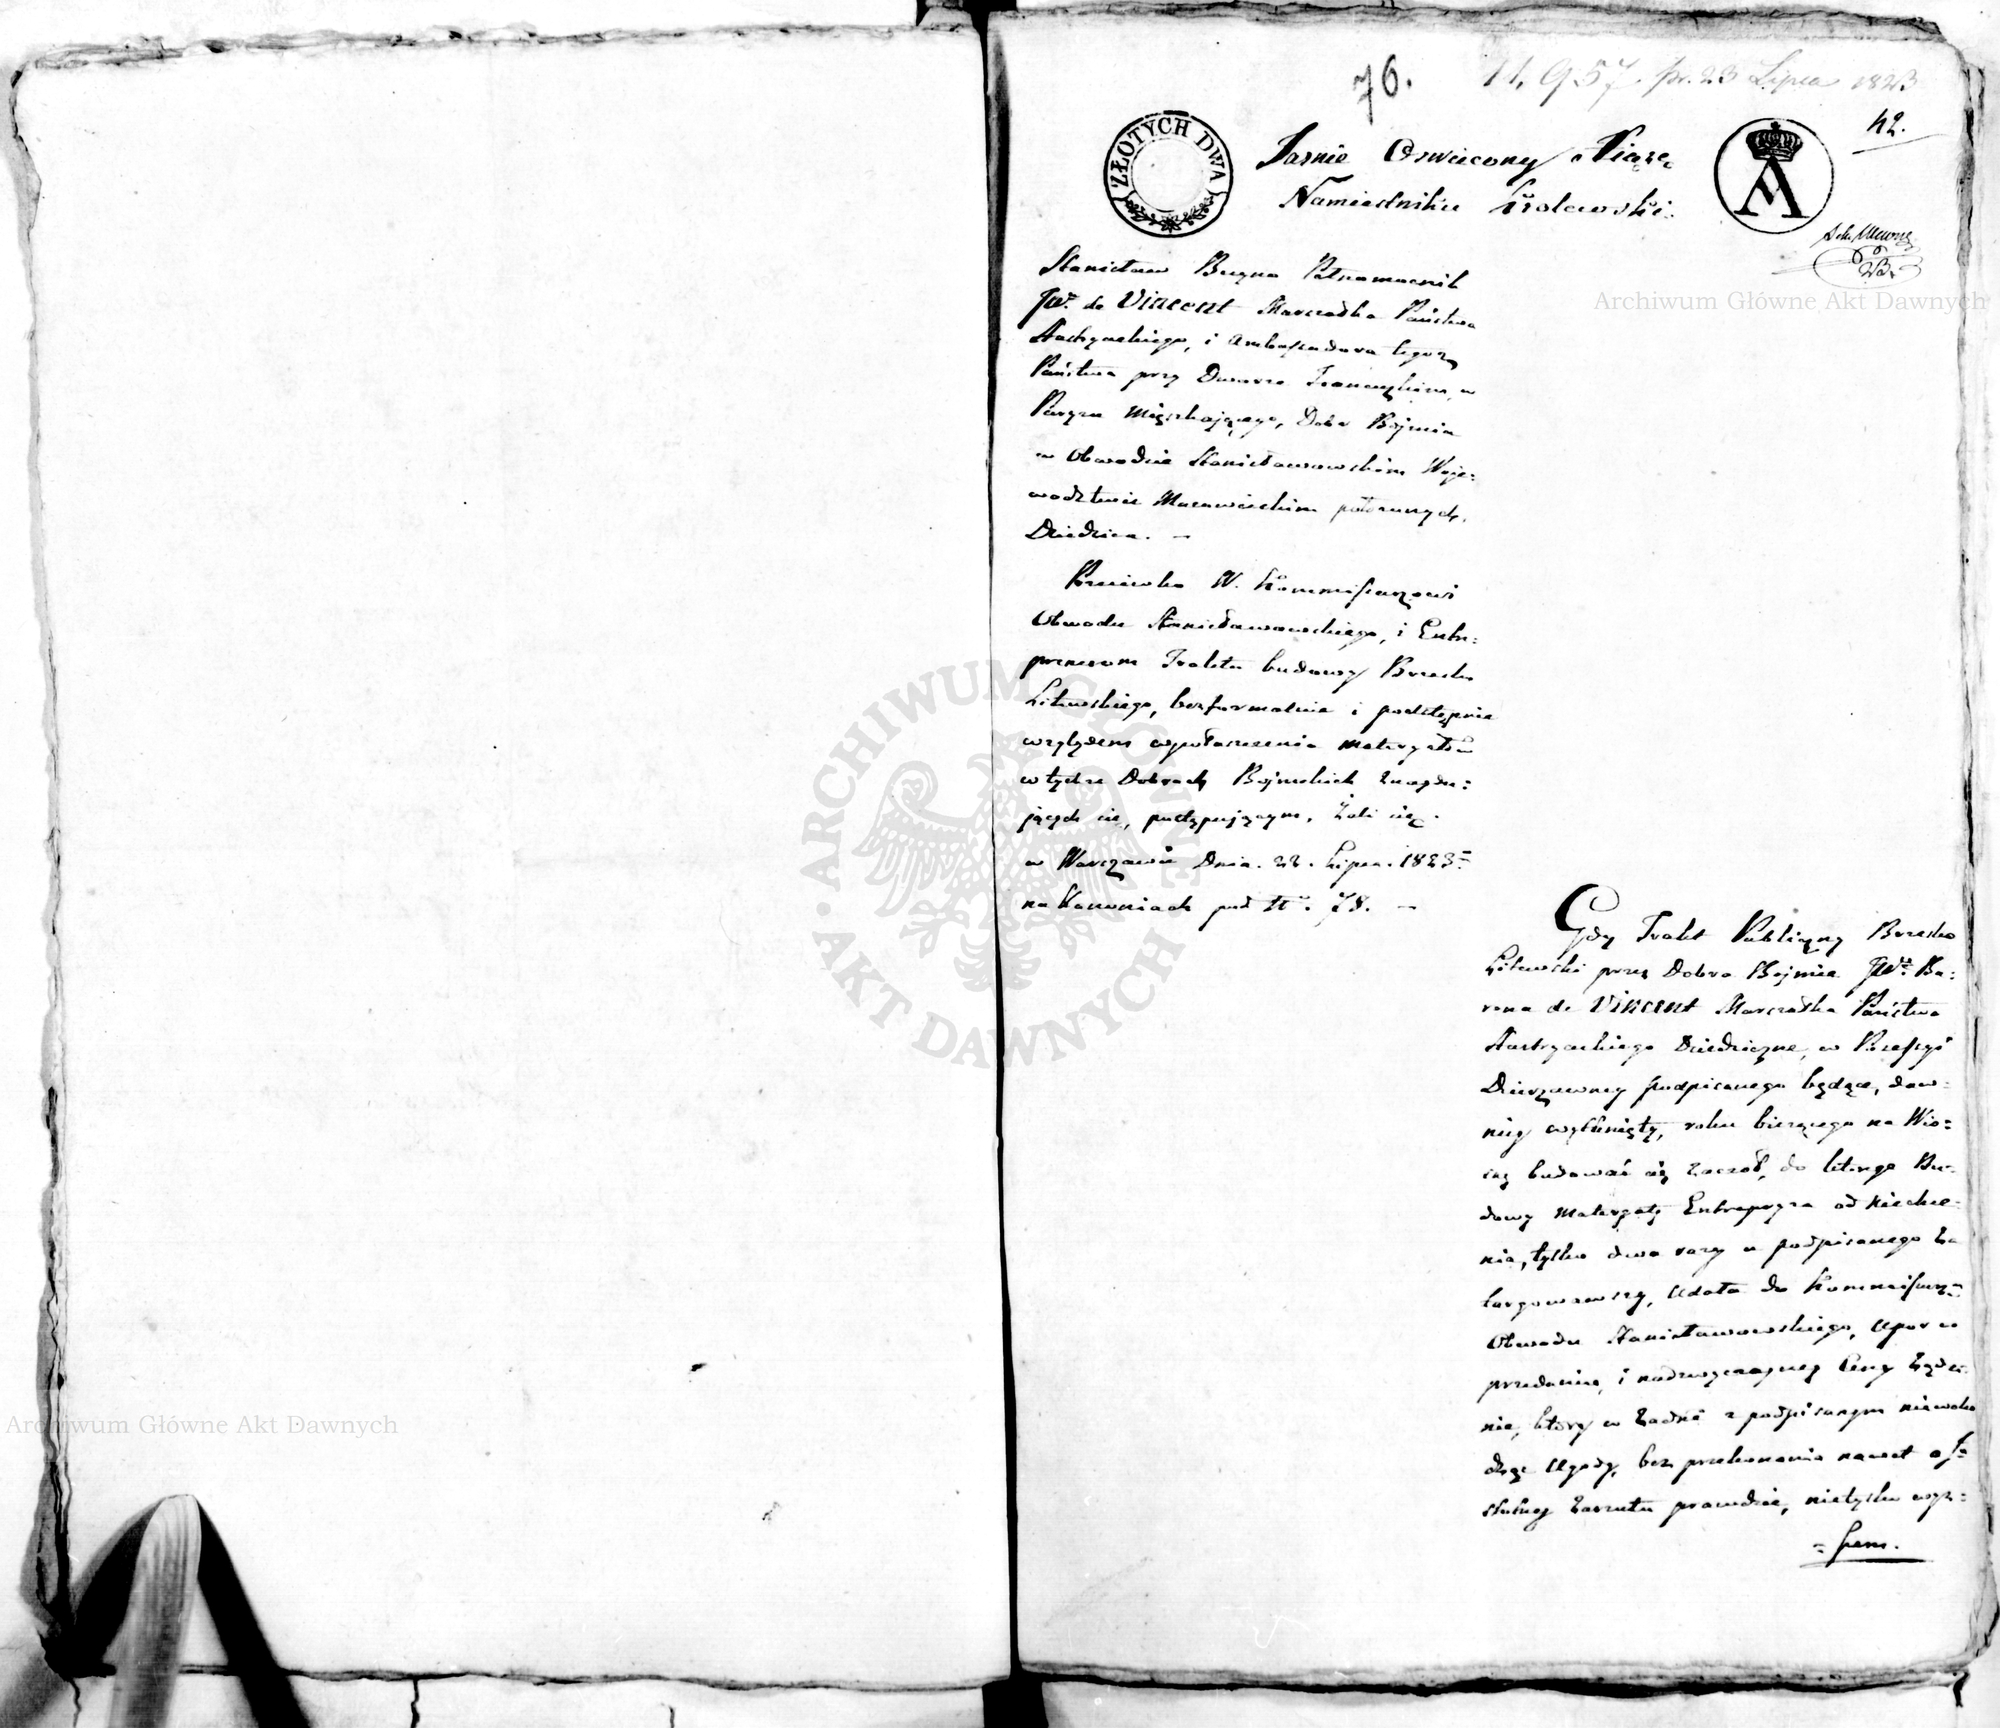 76.
11,957. pr. 23 Lipca 1823
42.
ZŁOTYCH DWA
Jasnie Oswiecony Xiąże
Namiestniku Krolewski.
A
Stanisław Bugno Pełnomocnik
JWo. de Vincent Marszałka Państwa
Austryackiego, i Ambassadora tegoż
Państwa przy Dworze Francuzkim, w
Paryżu Mięszkaiącego, Dobr Bojmia
w Obwodzie Stanisławowskim Woje=
wodztwie Mazowieckim położonych,
Dziedzica. –
Przeciwko W. Kommissarzowi
Obwodu Stanisławowskiego, i Entre=
prenerom Traktu budowy Brzesko
Litewskiego, bezformalnie i podstępnie
względem wywłaszczenia materyałów
w tychże Dobrach Bojmskich znaydu=
jących się, postępującym, Żali się.
w Warszawie Dnia. 22. Lipca. 1823
na Kanoniach pod No. 78. –
Gdy Trakt Publiczny Brzesko
Litewski przez Dobra Bojmie JWo. Ba=
rona de Vincent Marszałka Państwa
Austryackiego Dziedziczne, w Possessyi
Dzierzawney podpisanego będące, daw=
niey wytknięty, roku bierzącego na Wio=
snę budować się zaczął, do którego Bu=
dowy Materyały Entrepryza od niechce=
nia, tylko dwa razy u podpisanego za
targowawszy, udała do Kommissarza
Obwodu Stanisławowskiego, upor w
przedaniu, i nadzwyczayney Ceny żąda=
nie, który w żadne z podpisanym niewcho
dząc Ugody, bez przekonania nawet o
słuszney zarzutu prawdzie, nietylko wyż=
=szem.
Archiwum Główne Akt Dawnych
Archiwum Główne Akt Dawnych
ARCHIWUM GŁÓWNE AKT DAWNYCH